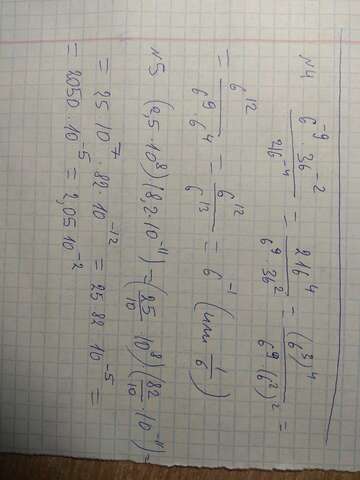 №4 6^-9 · 36^-2 / 216^-4 = 216^4 / 6^9 · 36^2 = (6^3)^4 / 6^9 (6^2)^2 =
= 6^12 / 6^9 · 6^4 = 6^12 / 6^13 = 6^-1 (или 1/6)
№5 (2,5 · 10^8)(8,2 · 10^-11) = (25/10 · 10^8)(82/10 · 10^-11) =
= 25 10^7 · 82 · 10^-12 = 25 82 10^-5 =
= 2050 · 10^-5 = 2,05 10^-2